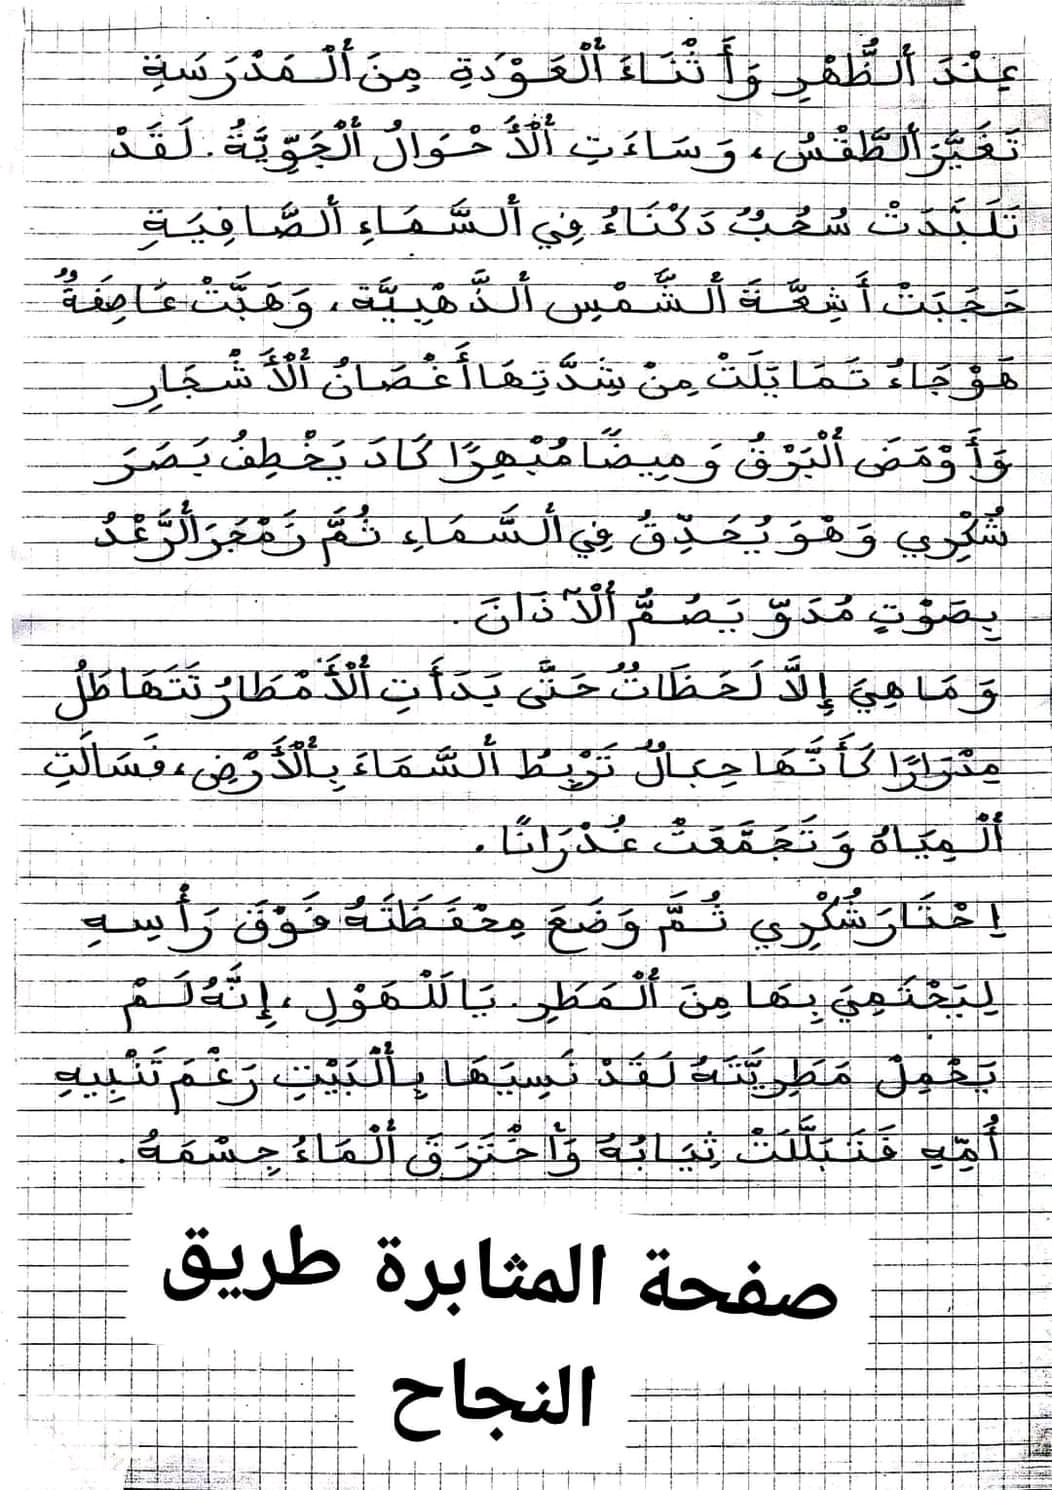 عِنْدَ ٱلظُّهْرِ وَأَثْنَاءَ ٱلْعَوْدَةِ مِنَ ٱلْمَدْرَسَةِ
تَغَيَّرَ ٱلطَّقْسُ، وَسَاءَتِ ٱلْأَحْوَالُ ٱلْجَوِّيَّةُ. لَقَدْ
تَلَبَّدَتْ سُحُبٌ دَكْنَاءُ فِي ٱلسَّمَاءِ ٱلصَّافِيَةِ
حَجَبَتْ أَشِعَّةَ ٱلشَّمْسِ ٱلذَّهْبِيَّة، وَهَبَّتْ عَاصِفَةٌ
هَوْجَاءُ تَمَايَلَتْ مِنْ شِدَّتِهَا أَغْصَانُ ٱلْأَشْجَارِ
وَأَوْمَضَ ٱلْبَرْقُ وَمِيضًا مُبْهِرًا كَادَ يَخْطِفُ بَصَرَ
شُكْرِي وَهْوَ يُحَدِّقُ فِي ٱلسَّمَاءِ ثُمَّ زَمْجَرَ ٱلرَّعْدُ
بِصَوْتٍ مُدَوٍّ يَصُمُّ ٱلْآذَانَ.
وَمَا هِيَ إِلَّا لَحَظَاتٌ حَتَّى بَدَأَتِ ٱلْأَمْطَارُ تَتَهَاطَلُ
مِدْرَارًا كَأَنَّهَا حِبَالٌ تَرْبِطُ ٱلسَّمَاءَ بِٱلْأَرْضِ، فَسَالَتِ
ٱلْمِيَاهُ وَتَجَمَّعَتْ غُدْرَانًا.
اِحْتَارَ شُكْرِي ثُمَّ وَضَعَ مِحْفَظَتَهُ فَوْقَ رَأْسِهِ
لِيَحْتَمِيَ بِهَا مِنَ ٱلْمَطَرِ. يَا لَلْهَوْلِ، إِنَّهُ لَمْ
يَحْمِلْ مَطَرِيَّتَهُ لَقَدْ نَسِيَهَا بِٱلْبَيْتِ رَغْمَ تَنْبِيهِ
أُمِّهِ فَتَبَلَّلَتْ ثِيَابُهُ وَٱخْتَرَقَ ٱلْمَاءُ جِسْمَهُ.
صفحة المثابرة طريق
النجاح